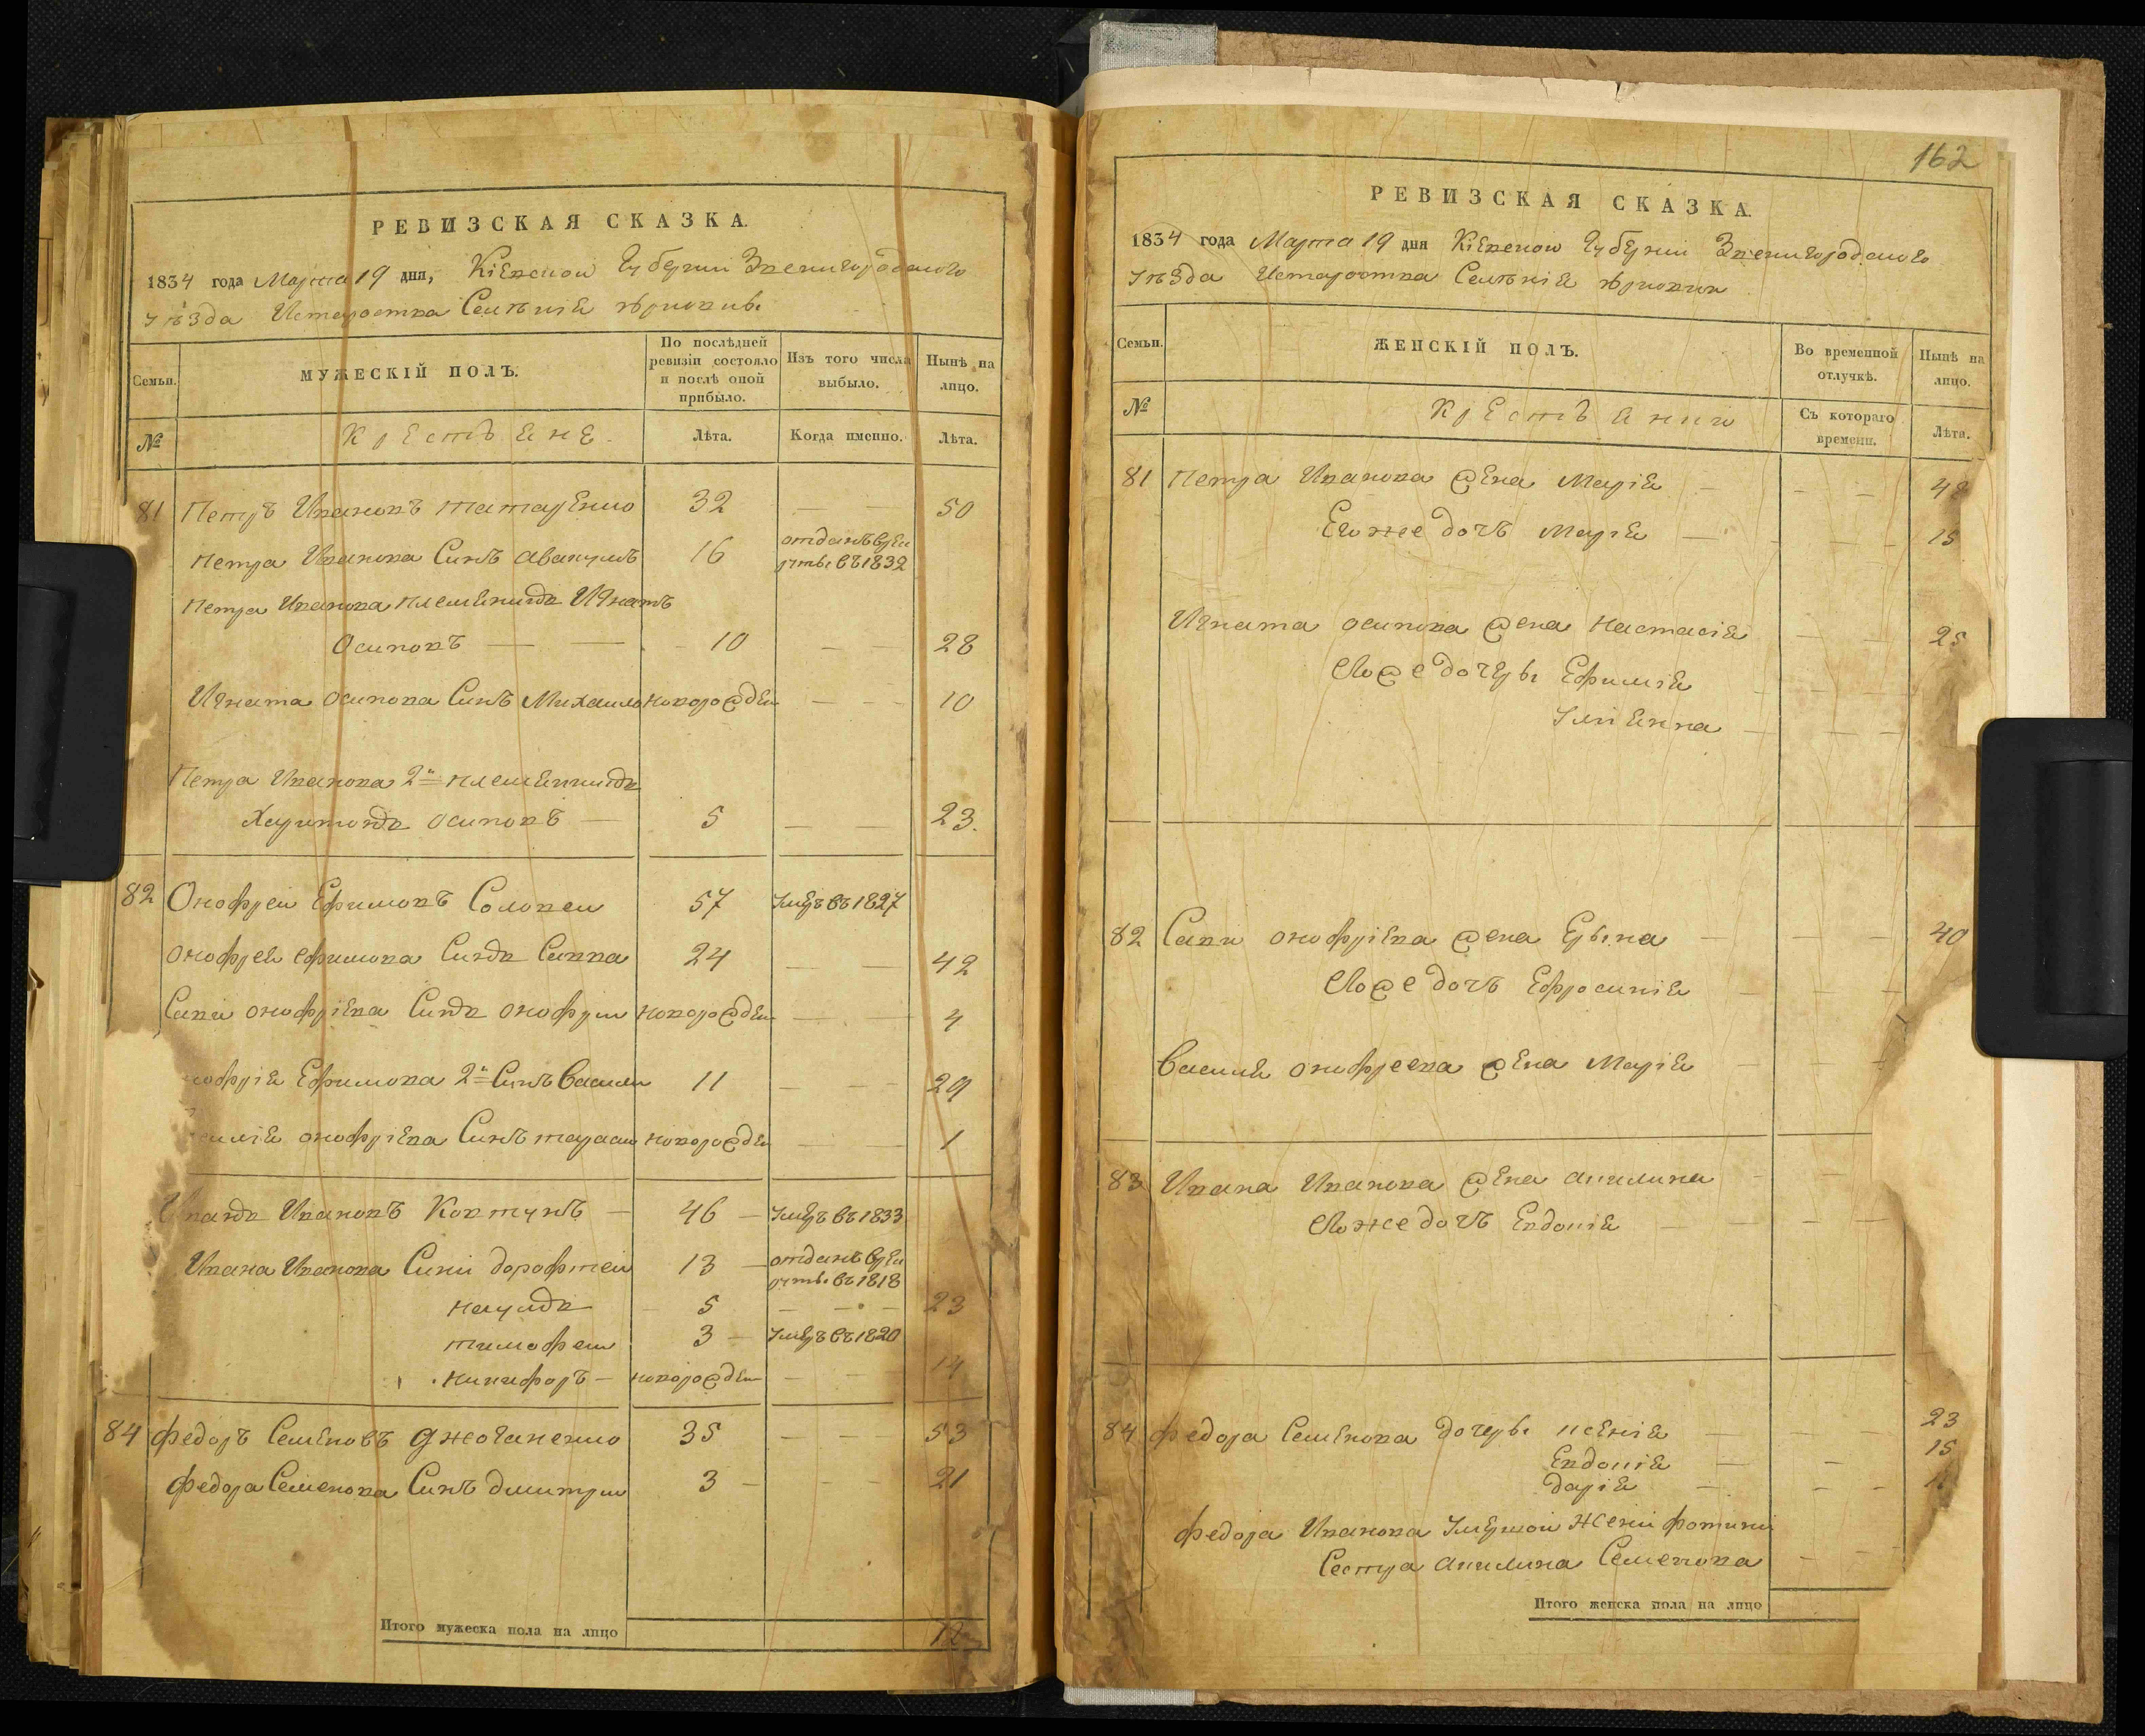 РЕВИЗСКАЯ СКАЗКА.
1834 года Марта 19 дня, Кіевской Губерніи Звенигородского
Уѣзда Староства Селѣніе
Семьи.
МУЖЕСКІЙ ПОЛЪ.
По послѣдней ревизіи состояло и послѣ оной прибыло.
Изъ того числа выбыло.
Нынѣ на лицо.
№
Крестьяне.
Лѣта.
Когда именно.
Лѣта.
81 Петръ Ивановъ 32 — — 50
Петра Иванова Синъ Авакумъ 16 отданъ врек
руты въ 1832
Петра Иванова племенникъ Игнатъ
Осиповъ — — 10 — — 28
Игната Осипова Синъ Михаило новорожден — — 10
Петра Иванова 2й племенникъ
Харитонъ Осиповъ — 5 — — 23.
82 Онофреи Ефимовъ Соловеи 57 Умеръ въ 1827
Онофрея Ефимова Синъ Савва 24 — — 42
Сави Онофріева Синъ Онофрии новорожден — — 4
нофрія Ефимова 2й Синъ Василии 11 — — 29
силія Онофріева Синъ Тарасии новорожден — — 1
Иванъ Ивановъ Ковтунъ — 46 — Умеръ въ 1833
Ивана Иванова Сини Дорофтеи 13 — отданъ врек
руты въ 1818
Наумъ 5 — — 23
Тимофеи 3 — Умеръ въ 1820
Никифоръ — новорожден — — 14
84 Федоръ Семеновъ Джоганенко 35 — — 53
Федора Семенова Синъ Дмитрии 3 — — — 21
Итого мужеска пола на лицо 12
162
РЕВИЗСКАЯ СКАЗКА.
1834 года Марта 19 дня Кіевской Губерніи Звенигородского
Уѣзда Староства Селѣніе
Семьи.
ЖЕНСКІЙ ПОЛЪ.
Во временной отлучкѣ.
Нынѣ на лицо.
№
Крестьянки
Съ котораго времени.
Лѣта.
81 Петра Иванова жена Марія — — — 48
Его же дочъ Марія — — — 15
Игната Осипова жена Настасія — — 25
Его же дочеры Ефимія — — —
Улиянна — — —
82 Сави Онофріева жена Ирына — — — 40
Его же дочъ Ефросинія — — —
Василя Онофреева жена Марія — —
83 Ивана Иванова жена Акилина — —
Его же дочъ Евдокія — — —
84 Федора Семенова дочеры Ксенія — — — 23
Евдокія — — 15
Дарія — — —
Федора Иванова Умершои жени Фотинии
Сестра Акилина Семенова — —
Итого женска пола на лицо